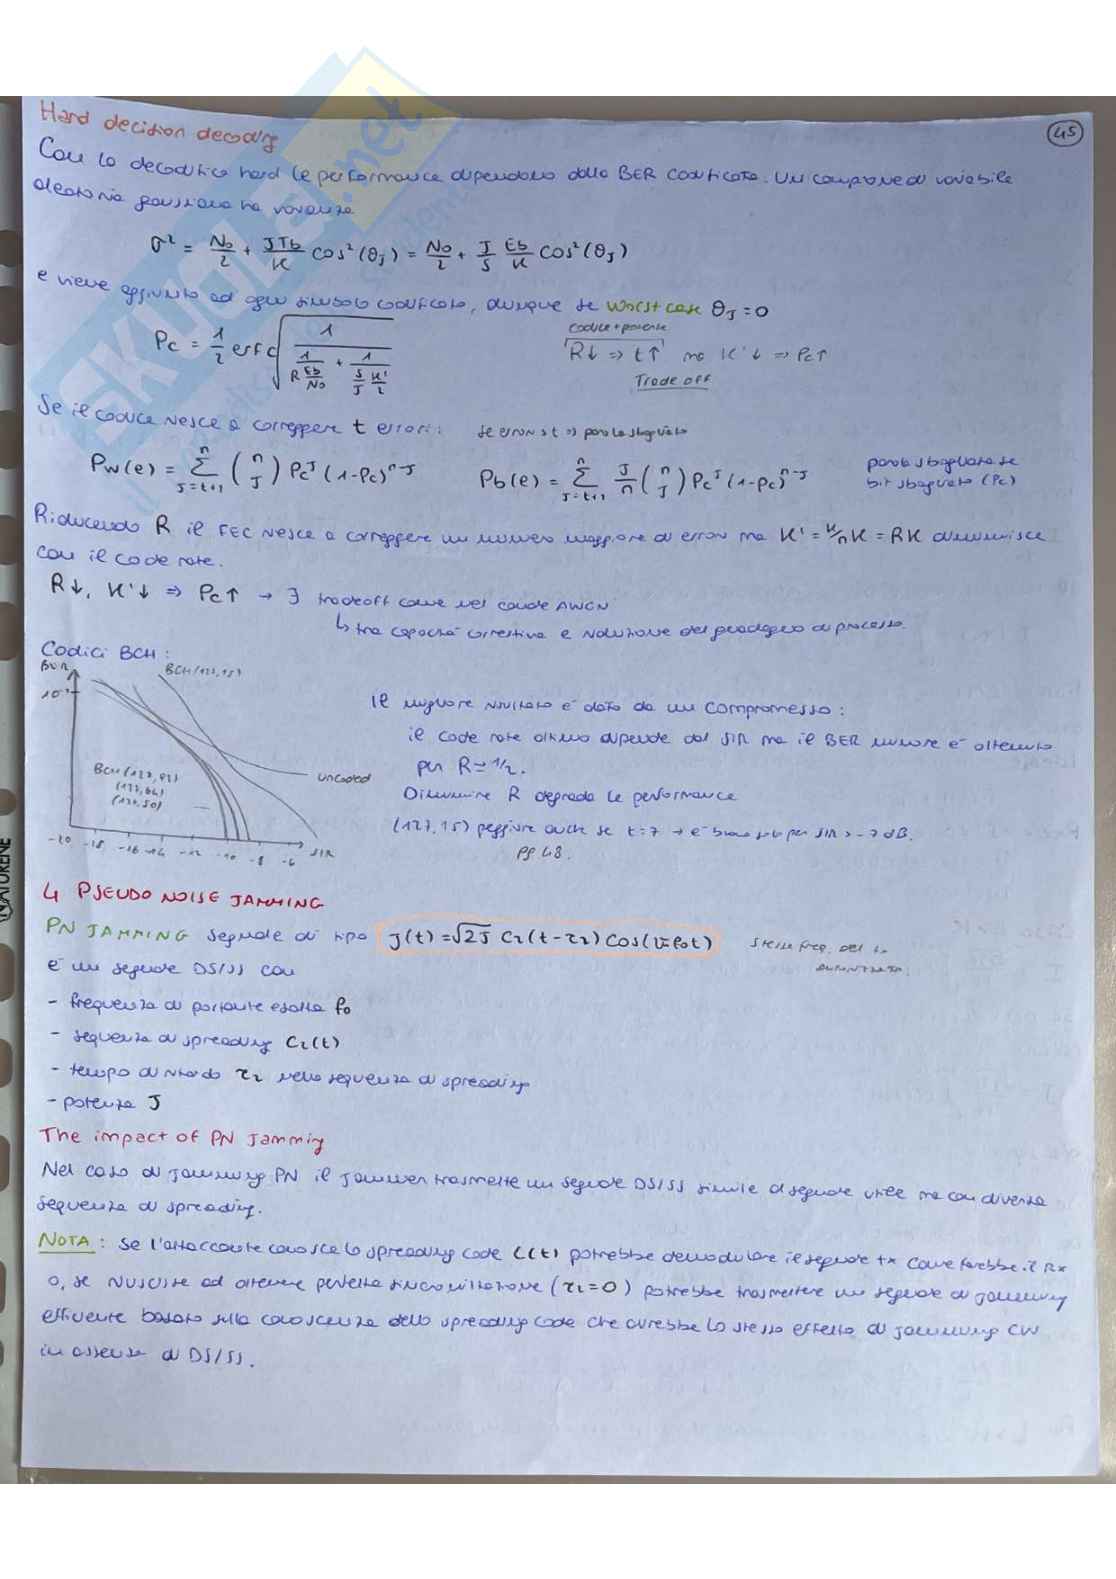 Hard decision decoding
45
Con la decodifica hard le performance dipendono dalla BER codificata. Un campione di variabile
aleatoria gaussiana ha varianza
σ² = No/2 + JTb/K cos²(θJ) = No/2 + J/S Eb/K cos²(θJ)
e viene aggiunto ad ogni simbolo codificato, dunque se worst case θJ = 0
Pc = 1/2 erfc √(1/(1/(R Eb/No) + 1/(S/J K'/2)))
codice + potente
R↓ => t↑ ma K'↓ => Pc↑
Trade off
Se il codice riesce a correggere t errori: se errori > t => parola sbagliata
Pw(e) = Σ_{J=t+1}^{n} (n J) Pc^J (1-Pc)^{n-J} Pb(e) = Σ_{J=t+1}^{n} J/n (n J) Pc^J (1-Pc)^{n-J}
parola sbagliata se
bit sbagliato (Pc)
Riducendo R il FEC riesce a correggere un numero maggiore di errori ma K' = k/n K = RK diminuisce
con il code rate.
R↓, K'↓ => Pc↑ → ∃ tradeoff come nel canale AWGN
↳ tra capacità correttiva e riduzione del guadagno di processo.
Codici BCH:
BER
BCH(127,15)
10⁻
Il migliore risultato è dato da un compromesso:
il code rate ottimo dipende dal SIR ma il BER minore è ottenuto
per R ≃ 1/2.
uncoded
BCH(127,92)
(127,64)
(127,50)
Diminuire R degrada le performance
(127,15) peggiore anche se t=7 → è buono solo per SIR > -7 dB.
-20 -18 -16 -14 -12 -10 -8 -6 SIR
pg 48.
4 PSEUDO NOISE JAMMING
PN JAMMING segnale di tipo J(t) = √2J C₂(t-τ₂) cos(2πf₀t) stessa freq. del
è un segnale DS/SS con
- frequenza di portante esatta f₀
- sequenza di spreading C₂(t)
- tempo di ritardo τ₂ nella sequenza di spreading
- potenza J
The impact of PN Jamming
Nel caso di jamming PN il jammer trasmette un segnale DS/SS simile al segnale utile ma con diversa
sequenza di spreading.
NOTA: Se l'attaccante conosce lo spreading code C(t) potrebbe demodulare il segnale tx come farebbe il Rx
o, se riuscisse ad ottenere perfetta sincronizzazione (τ₂=0) potrebbe trasmettere un segnale di jamming
efficiente basato sulla conoscenza dello spreading code che avrebbe lo stesso effetto di jamming CW
in assenza di DS/SS.
SKUOLA.net